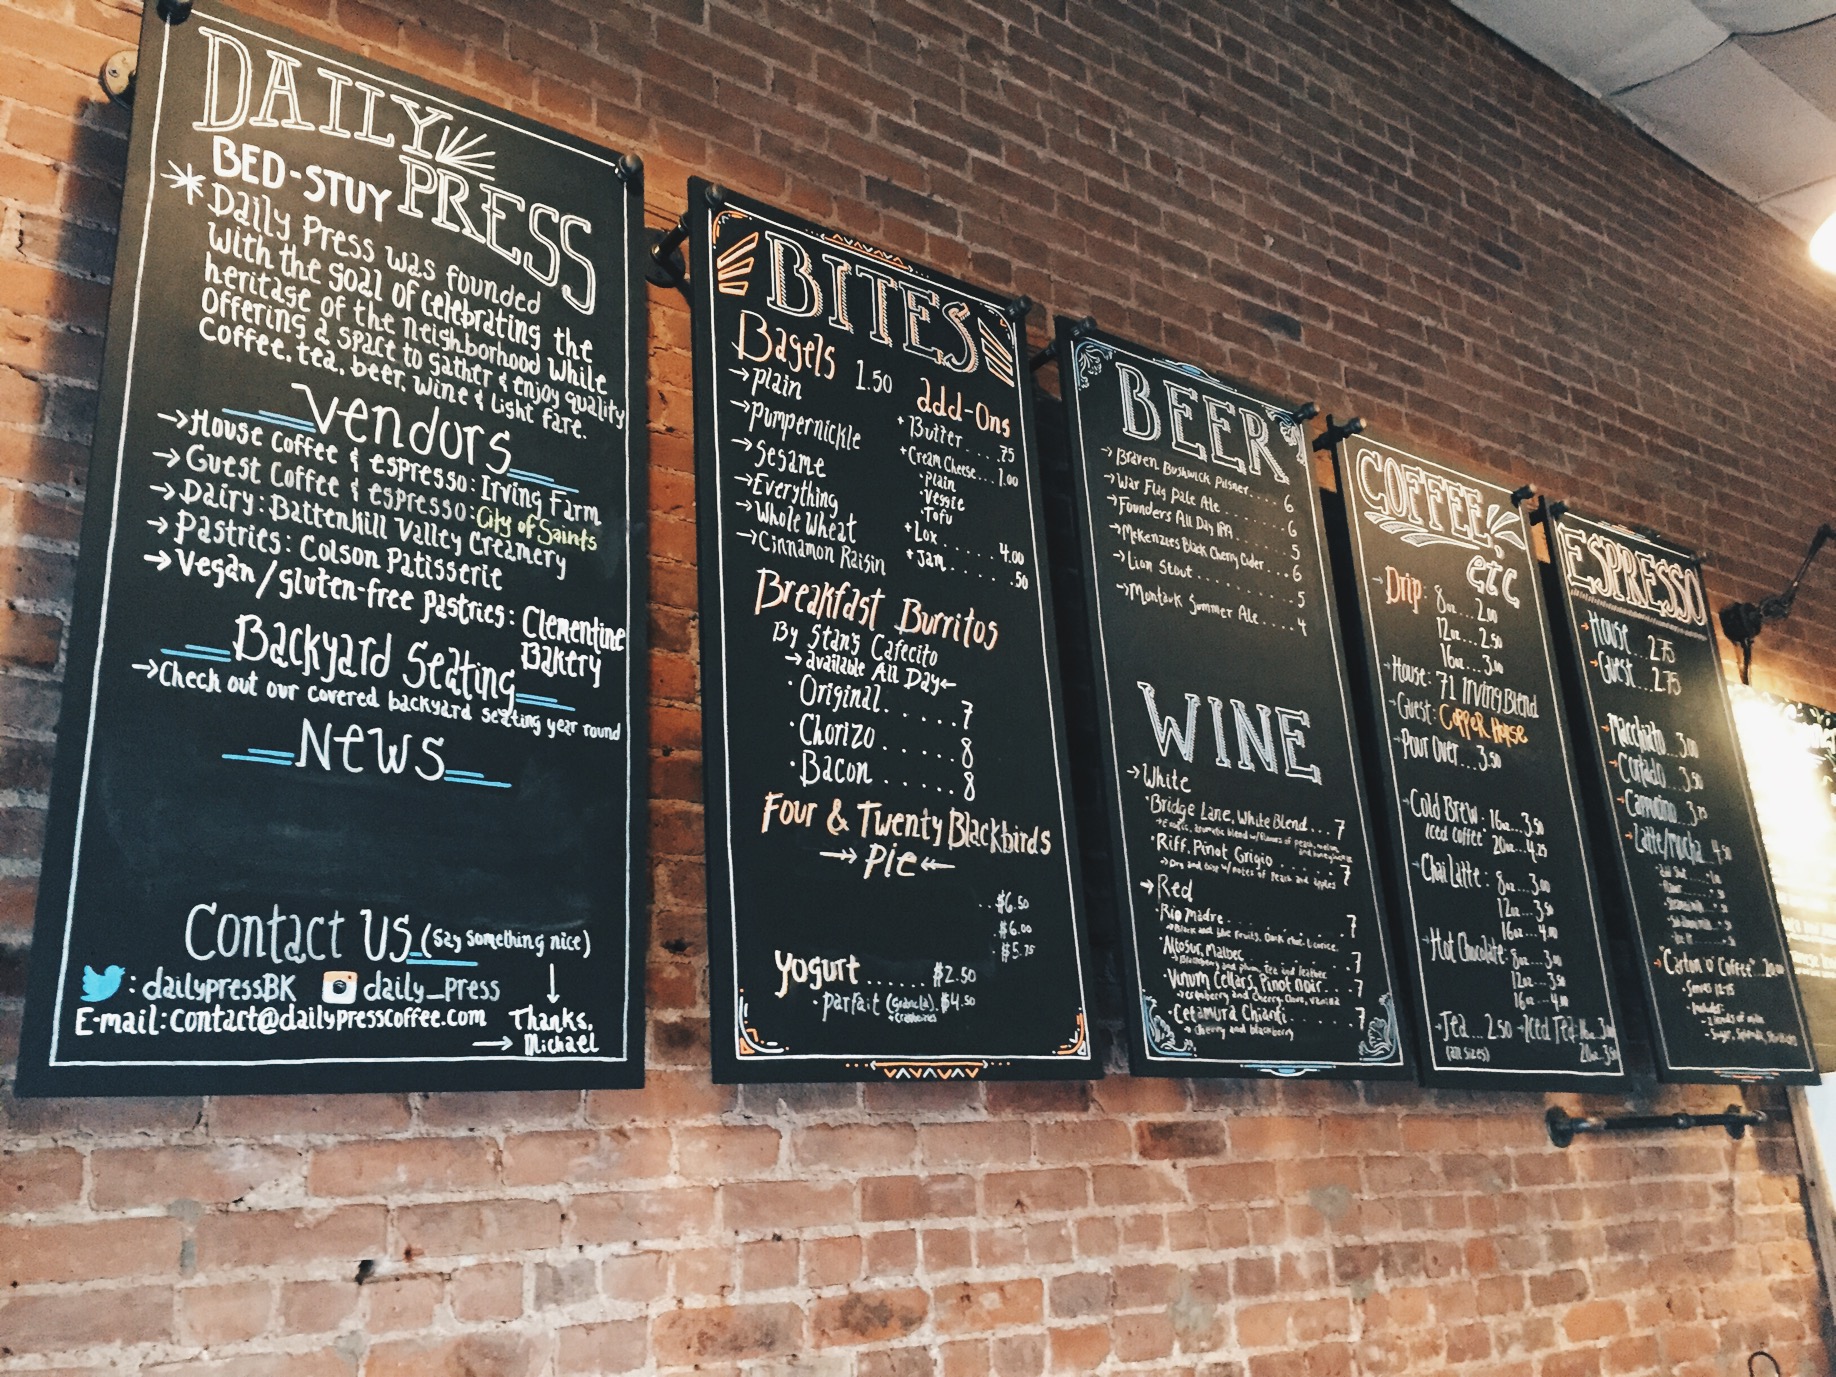 DAILY PRESS
BED-STUY
Daily Press was founded
with the goal of celebrating the
heritage of the neighborhood while
Offering a space to gather & enjoy quality
Coffee, tea, beer, wine & light fare.
Vendors
→House coffee & espresso: Irving Farm
→Guest Coffee & espresso: City of Saints
→Dairy: Battenkill Valley Creamery
→Pastries: Colson Patisserie
→Vegan/gluten-free pastries: Clementine
Bakery
Backyard Seating
→Check out our covered backyard seating year round
News
Contact Us (say something nice)
: dailypressBK daily_press
E-mail: contact@dailypresscoffee.com
Thanks,
→ Michael
BITES
Bagels 1.50
→plain
→pumpernickle
→Sesame
→Everything
→Whole Wheat
→Cinnamon Raisin
add-Ons
+Butter....75
+Cream Cheese...1.00
·Plain
·Veggie
·Tofu
+Lox......4.00
+Jam.......50
Breakfast Burritos
By Stan's Cafecito
→available All Day←
·Original......7
·Chorizo.....8
·Bacon.....8
Four & Twenty Blackbirds
→ Pie ←
..$6.50
.$6.00
.$5.75
Yogurt......$2.50
·parfait (granola). $4.50
BEER
→Braven Bushwick Pilsner....6
→War Flag Pale Ale........6
→Founders All Day IPA.......5
→McKenzies Black Cherry Cider...6
→Lion Stout.........5
→Montauk Summer Ale....4
WINE
→White
·Bridge Lane, White Blend...7
·Riff, Pinot Grigio.......7
→Dry and crisp w/notes of peach and apples
→Red
·Rio Madre..........7
·Altosur, Malbec........7
·Vinum Cellars, Pinot noir...7
→cranberry and cherry, clove, vanilla
·Cetamura Chianti......7
→cherry and blackberry
COFFEE,
etc
→Drip: 8oz...2.00
12oz...2.50
16oz...3.00
→House: 71 Irving Blend
→Guest: Copper Horse
→Pour Over...3.50
→Cold Brew: 16oz...3.50
Iced Coffee 20oz...4.25
→Chai Latte: 8oz...3.00
12oz...3.50
16oz...4.00
→Hot Chocolate: 8oz...3.00
12oz...3.50
16oz...4.00
→Tea...2.50 →Iced Tea: 16oz.
(all sizes) 20oz.
ESPRESSO
→House...2.75
→Guest...2.75
→Macchiato..3.00
→Cortado..3.50
→Cappuccino..3.75
→Latte/Mocha 4.50
→Carton 'o' Coffee
·Serves 12-15
·Includes: